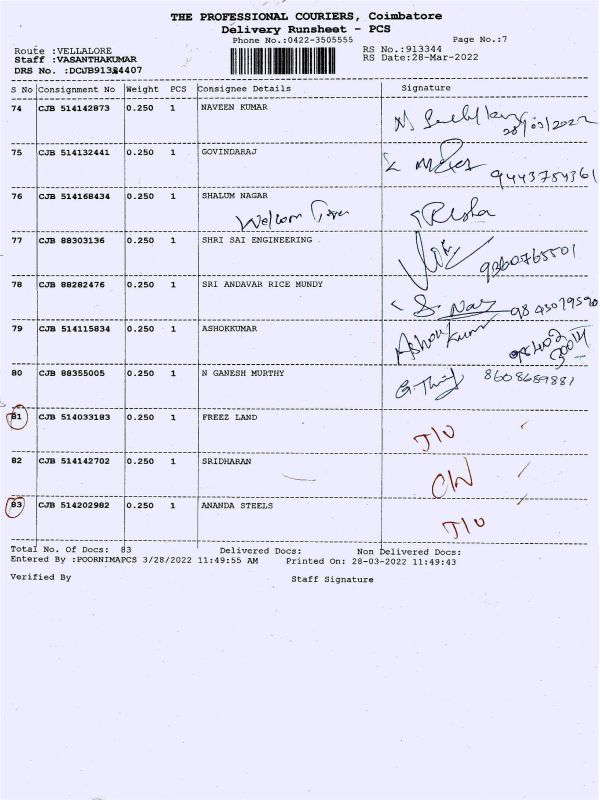 THE PROFESSIONAL COURIERS, Coimbatore
Delivery Runsheet - PCS
Phone No.:0422-3505555 Page No.:7
Route :VELLALORE RS No.:913344
Staff :VASANTHAKUMAR RS Date:28-Mar-2022
DRS No. :DCJB91334407
S No Consignment No Weight PCS Consignee Details Signature
74 CJB 514142873 0.250 1 NAVEEN KUMAR
28/03/2022
75 CJB 514132441 0.250 1 GOVINDARAJ
9443754361
76 CJB 514168434 0.250 1 SHALUM NAGAR
Welcom
77 CJB 88303136 0.250 1 SHRI SAI ENGINEERING
9360765501
78 CJB 88282476 0.250 1 SRI ANDAVAR RICE MUNDY
9843079590
79 CJB 514115834 0.250 1 ASHOKKUMAR
Ashok kumar
80 CJB 88355005 0.250 1 N GANESH MURTHY
8608689881
81 CJB 514033183 0.250 1 FREEZ LAND
82 CJB 514142702 0.250 1 SRIDHARAN
83 CJB 514202982 0.250 1 ANANDA STEELS
Total No. Of Docs: 83 Delivered Docs: Non Delivered Docs:
Entered By :POORNIMAPCS 3/28/2022 11:49:55 AM Printed On: 28-03-2022 11:49:43
Verified By Staff Signature